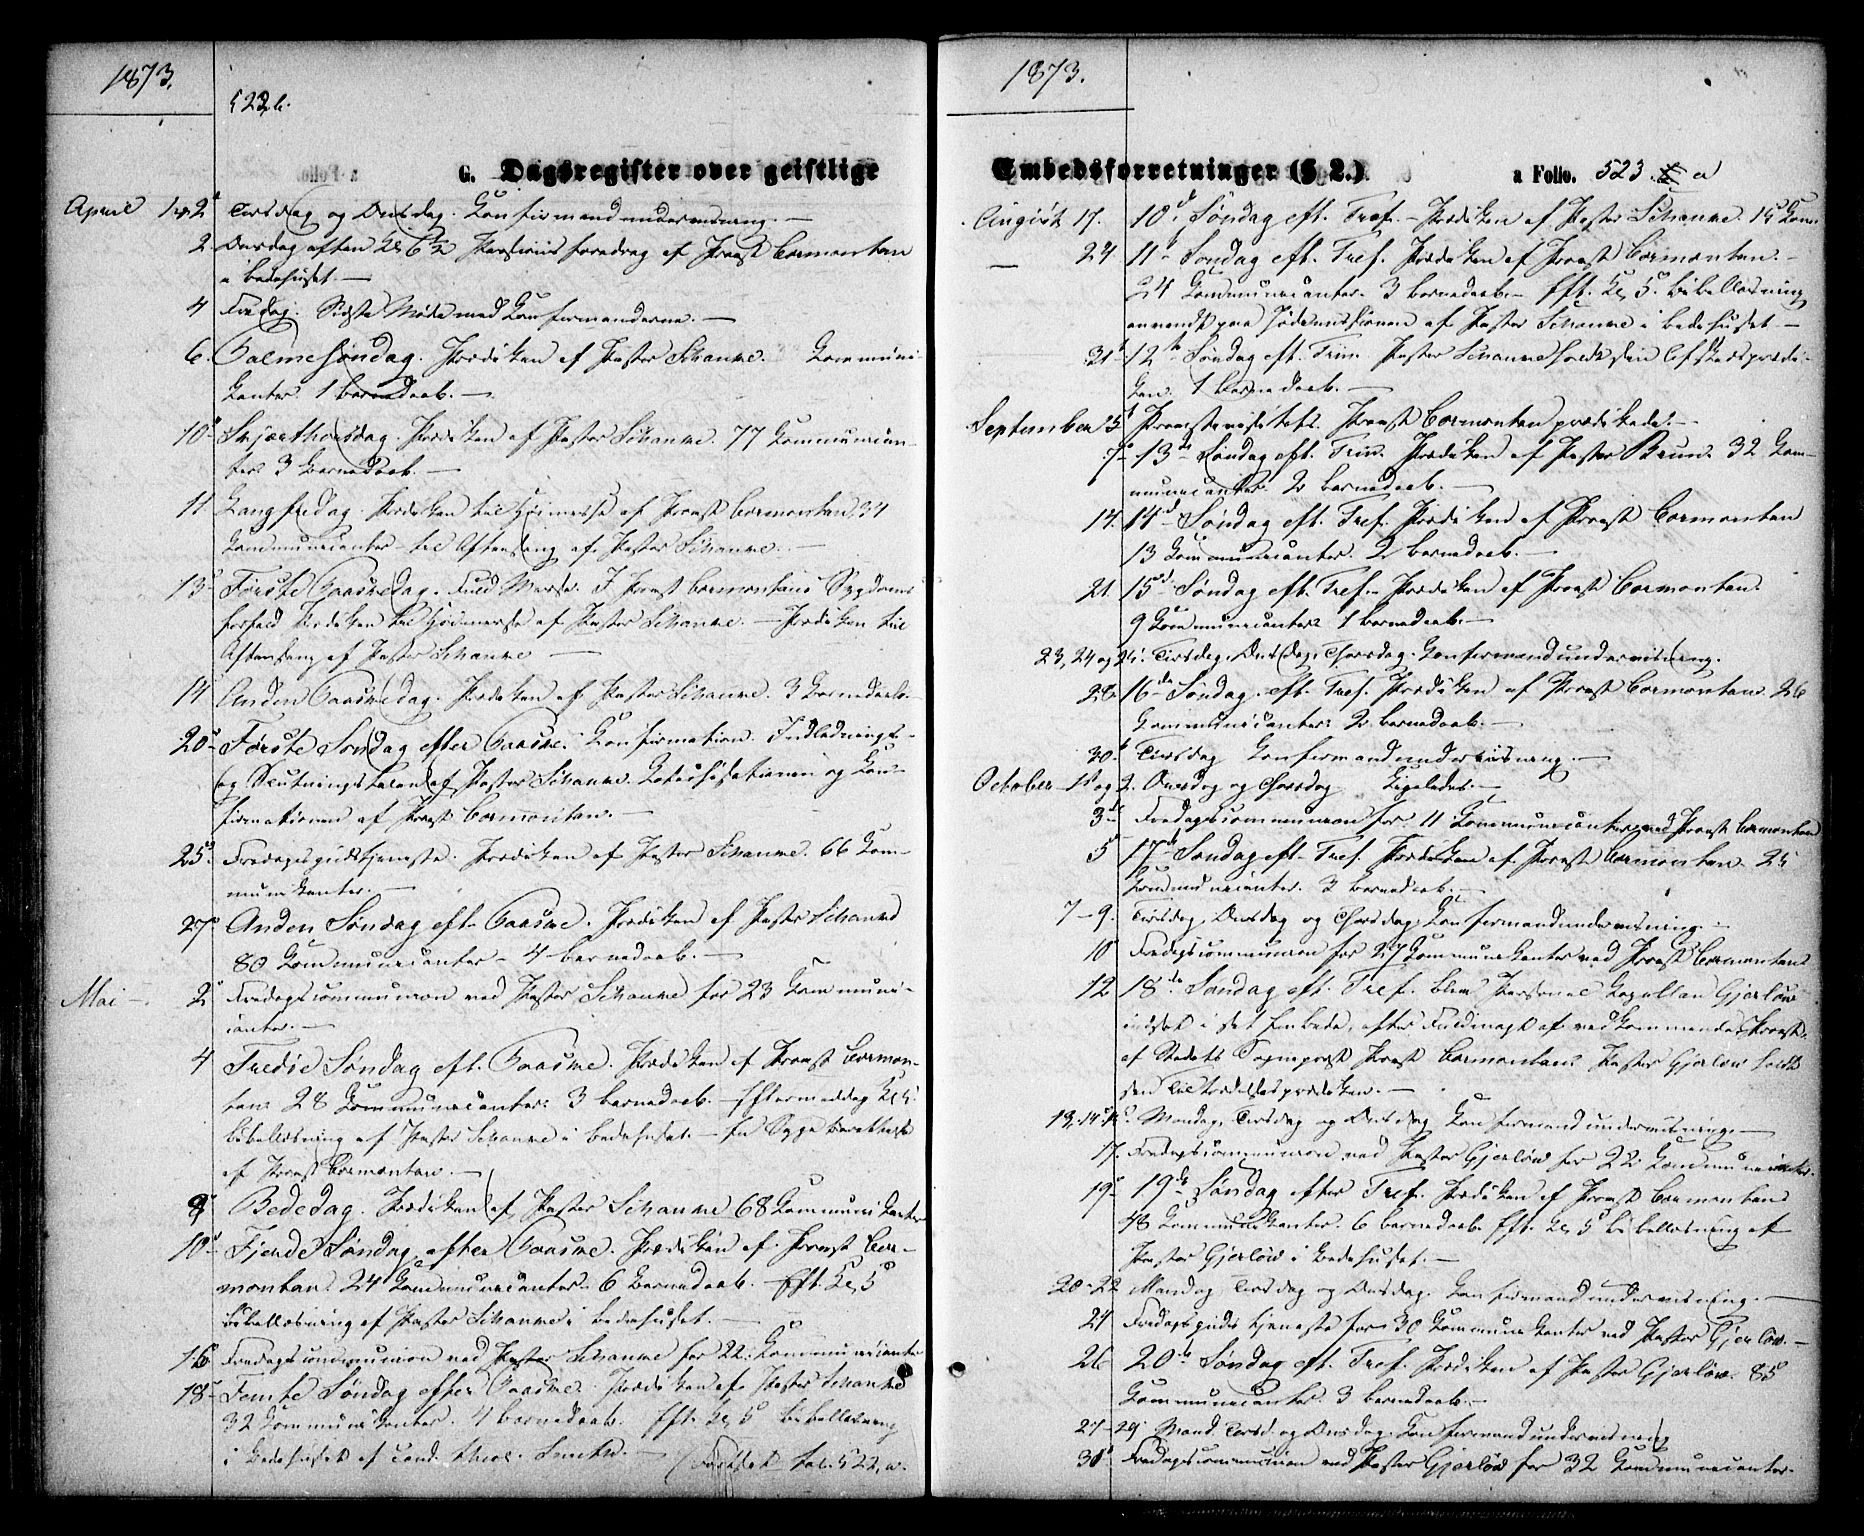 1873.
523,b.
G. Dagsregister over geistlige
April 1&2 Tirsdag og Onsdag. Konfirmandundervisning. —
2. Onsdag aften Kl 6½ Passionsforedrag af Provst Cormontan
i Bedehuset. —
4 Fredag. Sidste Møde med Konfirmanderne. —
6. Palmesøndag. Prædiken af Pastor Schanke. Kommuni-
kanter. 1 barnedaab. —
10 Skjærthorsdag. Prædiken af Pastor Schanke. 77 Kommunican-
ter. 3 barnedaab. —
11 Langfredag. Prædiken til Høimesse af Provst Cormontan. 34
Kommunicanter — til Aftensang af Pastor Schanke. —
13 Første Paaskedag. Fuld Messe. I Provst Cormontans Sygdoms
forfald Prædiken til Høimesse af Pastor Schanke. — Prædiken til
Aftensang af Pastor Schanke —
14 Anden Paaskedag. Prædiken af Pastor Schanke. 3 barnedaab.
20 Første Søndag efter Paaske. Konfirmation. Indlednings-
og Slutningstalen af Pastor Schanke. Katechisationen og Kon-
firmationen af Provst Cormontan. —
25 Fredagsgudstjeneste. Prædiken af Pastor Schanke. 66 Kom-
munikanter. —
27 Anden Søndag eft. Paaske. Prædiken af Pastor Schanke
80 Kommunicanter — 4 barnedaab. —
Mai — 2 Fredagscommunion ved Pastor Schanke for 23 Kommuni-
canter. —
4 Tredie Søndag eft. Paaske. Prædiken af Provst Cormon-
tan. 28 Kommunicanter. 3 barnedaab. — Eftermiddag Kl 5.
bibellæsning af Pastor Schanke i bedehuset. — En Syge berettelse
af Provst Cormontan. —
9 Bededag. Prædiken af Pastor Schanke 68 Kommunikanter
10 Fjerde Søndag efter Paaske. Prædiken af Provst Cor-
montan. 24 Kommunicanter. 6 barnedaab. — Eft. Kl 5
bibellæsning af Pastor Schanke i bedehuset. —
16 Fredagscommunion ved Pastor Schanke for 22 Kommunicanter
18 Femte Søndag efter Paaske. Prædiken af Pastor Schanke
32 Kommunikanter. 4 barnedaab. Eft. Kl 5 bibellæsning
i bedehuset af Cand. theol. — (Fortsat fol. 522,a.
1873.
Embedsforretninger (§ 2.) a Folio. 523 a
August 17. 10de Søndag eft. Tref. — Prædiken af Pastor Schanke. 15 Kom.
— 24 11te Søndag eft. Tref. Prædiken af Provst Cormontan. —
24 Kommunicanter. 3 barnedaab. — Eft. Kl 5. bibellæsning
anvendt paa Jødemissionen af Pastor Schanke i bedehuset. —
31 12te Søndag eft. Trin. Pastor Schanke holdt sin Afskedsprædi-
ken. 1 barnedaab. —
September 5 Provstevisitats. Provst Cormontan prædikede. —
7 13de Søndag eft. Trin. Prædiken af Pastor Bruun. 32 Kom-
municanter. 2 barnedaab. —
14. 14de Søndag eft. Tref. Prædiken af Provst Cormontan
13 Kommunicanter. 2 barnedaab. —
21. 15de Søndag eft. Tref. Prædiken af Provst Cormontan.
9 Kommunicanter. 1 barnedaab. —
23, 24 og 25. Tirsdag, Onsdag, Thorsdag. Konfirmandundervisning.
28 16de Søndag eft. Tref. Prædiken af Provst Cormontan. 26
Kommunicanter. 2 barnedaab. —
30 Tirsdag Konfirmandundervisning. —
October 1 og 2. Onsdag og Thorsdag Ligeledes. —
3 Fredagscommunion for 11 Kommunicanter ved Provst Cormontan
5 17de Søndag eft. Tref. Prædiken af Provst Cormontan. 25
Kommunicanter. 3 barnedaab. —
7—9. Tirsdag, Onsdag og Thorsdag. Konfirmandundervisning. —
10 Fredagscommunion for 27 Kommunikanter ved Provst Cormontan
12 18de Søndag eft. Tref. blev Personel Kapellan Gjerløw
indsat i sit Embede, efter Fuldmagt af vedkommende Provst,
af Stedets Sognepræst Provst Cormontan. Pastor Gjerløw holdt
sin Tiltrædelsesprædiken. —
13, 14, 15. Mandag, Tirsdag og Onsdag Konfirmandundervisning. —
17. Fredagscommunion ved Pastor Gjerløw for 22 Kommunicanter.
19 19de Søndag efter Tref. Prædiken af Provst Cormontan
48 Kommunikanter. 6 barnedaab. Eft. Kl 5 bibellæsning af
Pastor Gjerløw i bedehuset. —
20-22 Mandag, Tirsdag og Onsdag. Konfirmandundervisning. —
24 Fredagsgudstjeneste for 30 Kommunikanter ved Pastor Gjerløw. —
26 20de Søndag eft. Tref. Prædiken af Pastor Gjerløw. 85
Kommunicanter. 3 barnedaab. —
27-29. Mand. Tirsd. og Onsdag. Konfirmandundervisning
31 Fredagscommunion ved Pastor Gjerløw for 32 Kommunicanter.